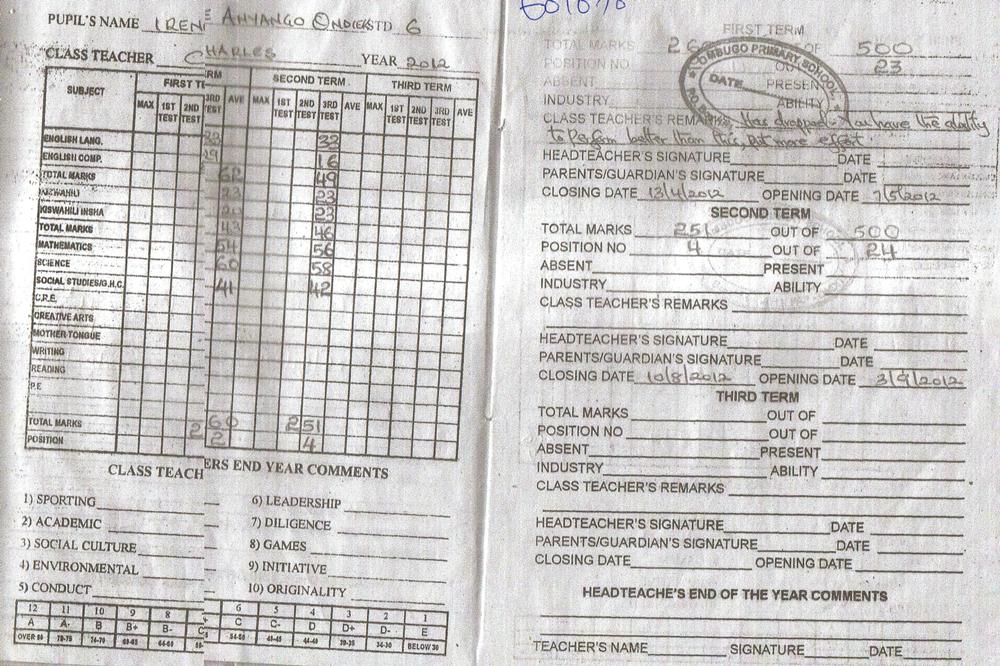 PUPIL'S NAME IRENE ANYANGO STD 6
CLASS TEACHER CHARLES YEAR 2012
SUBJECT FIRST TERM SECOND TERM THIRD TERM
MAX 1ST TEST 2ND TEST 3RD TEST AVE MAX 1ST TEST 2ND TEST 3RD TEST AVE MAX 1ST TEST 2ND TEST 3RD TEST AVE
ENGLISH LANG. 32
ENGLISH COMP. 16
TOTAL MARKS 49
KISWAHILI 23 23
KISWAHILI INSHA 23
TOTAL MARKS 43 46
MATHEMATICS 54 56
SCIENCE 60 58
SOCIAL STUDIES/G.H.C. 41 42
C.R.E.
CREATIVE ARTS
MOTHER TONGUE
WRITING
READING
P.E
TOTAL MARKS 260 251
POSITION 2 4
CLASS TEACHERS END YEAR COMMENTS
1) SPORTING 6) LEADERSHIP
2) ACADEMIC 7) DILIGENCE
3) SOCIAL CULTURE 8) GAMES
4) ENVIRONMENTAL 9) INITIATIVE
5) CONDUCT 10) ORIGINALITY
12 11 10 9 8 6 5 4 3 2 1
A A- B B+ B- C C- D D+ D- E
OVER 80 75-79 70-74 65-69 60-64 50-54 45-49 40-44 35-39 30-34 BELOW 30
FIRST TERM
TOTAL MARKS OF 500
POSITION NO 23
ABSENT PRESENT
INDUSTRY ABILITY
OMBUGO PRIMARY SCHOOL
DATE
CLASS TEACHER'S REMARKS Has dropped. You have the ability
to perform better than this, put more effort.
HEADTEACHER'S SIGNATURE DATE
PARENTS/GUARDIAN'S SIGNATURE DATE
CLOSING DATE 13/4/2012 OPENING DATE 7/5/2012
SECOND TERM
TOTAL MARKS 251 OUT OF 500
POSITION NO 4 OUT OF 24
ABSENT PRESENT
INDUSTRY ABILITY
CLASS TEACHER'S REMARKS
HEADTEACHER'S SIGNATURE DATE
PARENTS/GUARDIAN'S SIGNATURE DATE
CLOSING DATE 10/8/2012 OPENING DATE 3/9/2012
THIRD TERM
TOTAL MARKS OUT OF
POSITION NO OUT OF
ABSENT PRESENT
INDUSTRY ABILITY
CLASS TEACHER'S REMARKS
HEADTEACHER'S SIGNATURE DATE
PARENTS/GUARDIAN'S SIGNATURE DATE
CLOSING DATE OPENING DATE
HEADTEACHE'S END OF THE YEAR COMMENTS
TEACHER'S NAME SIGNATURE DATE